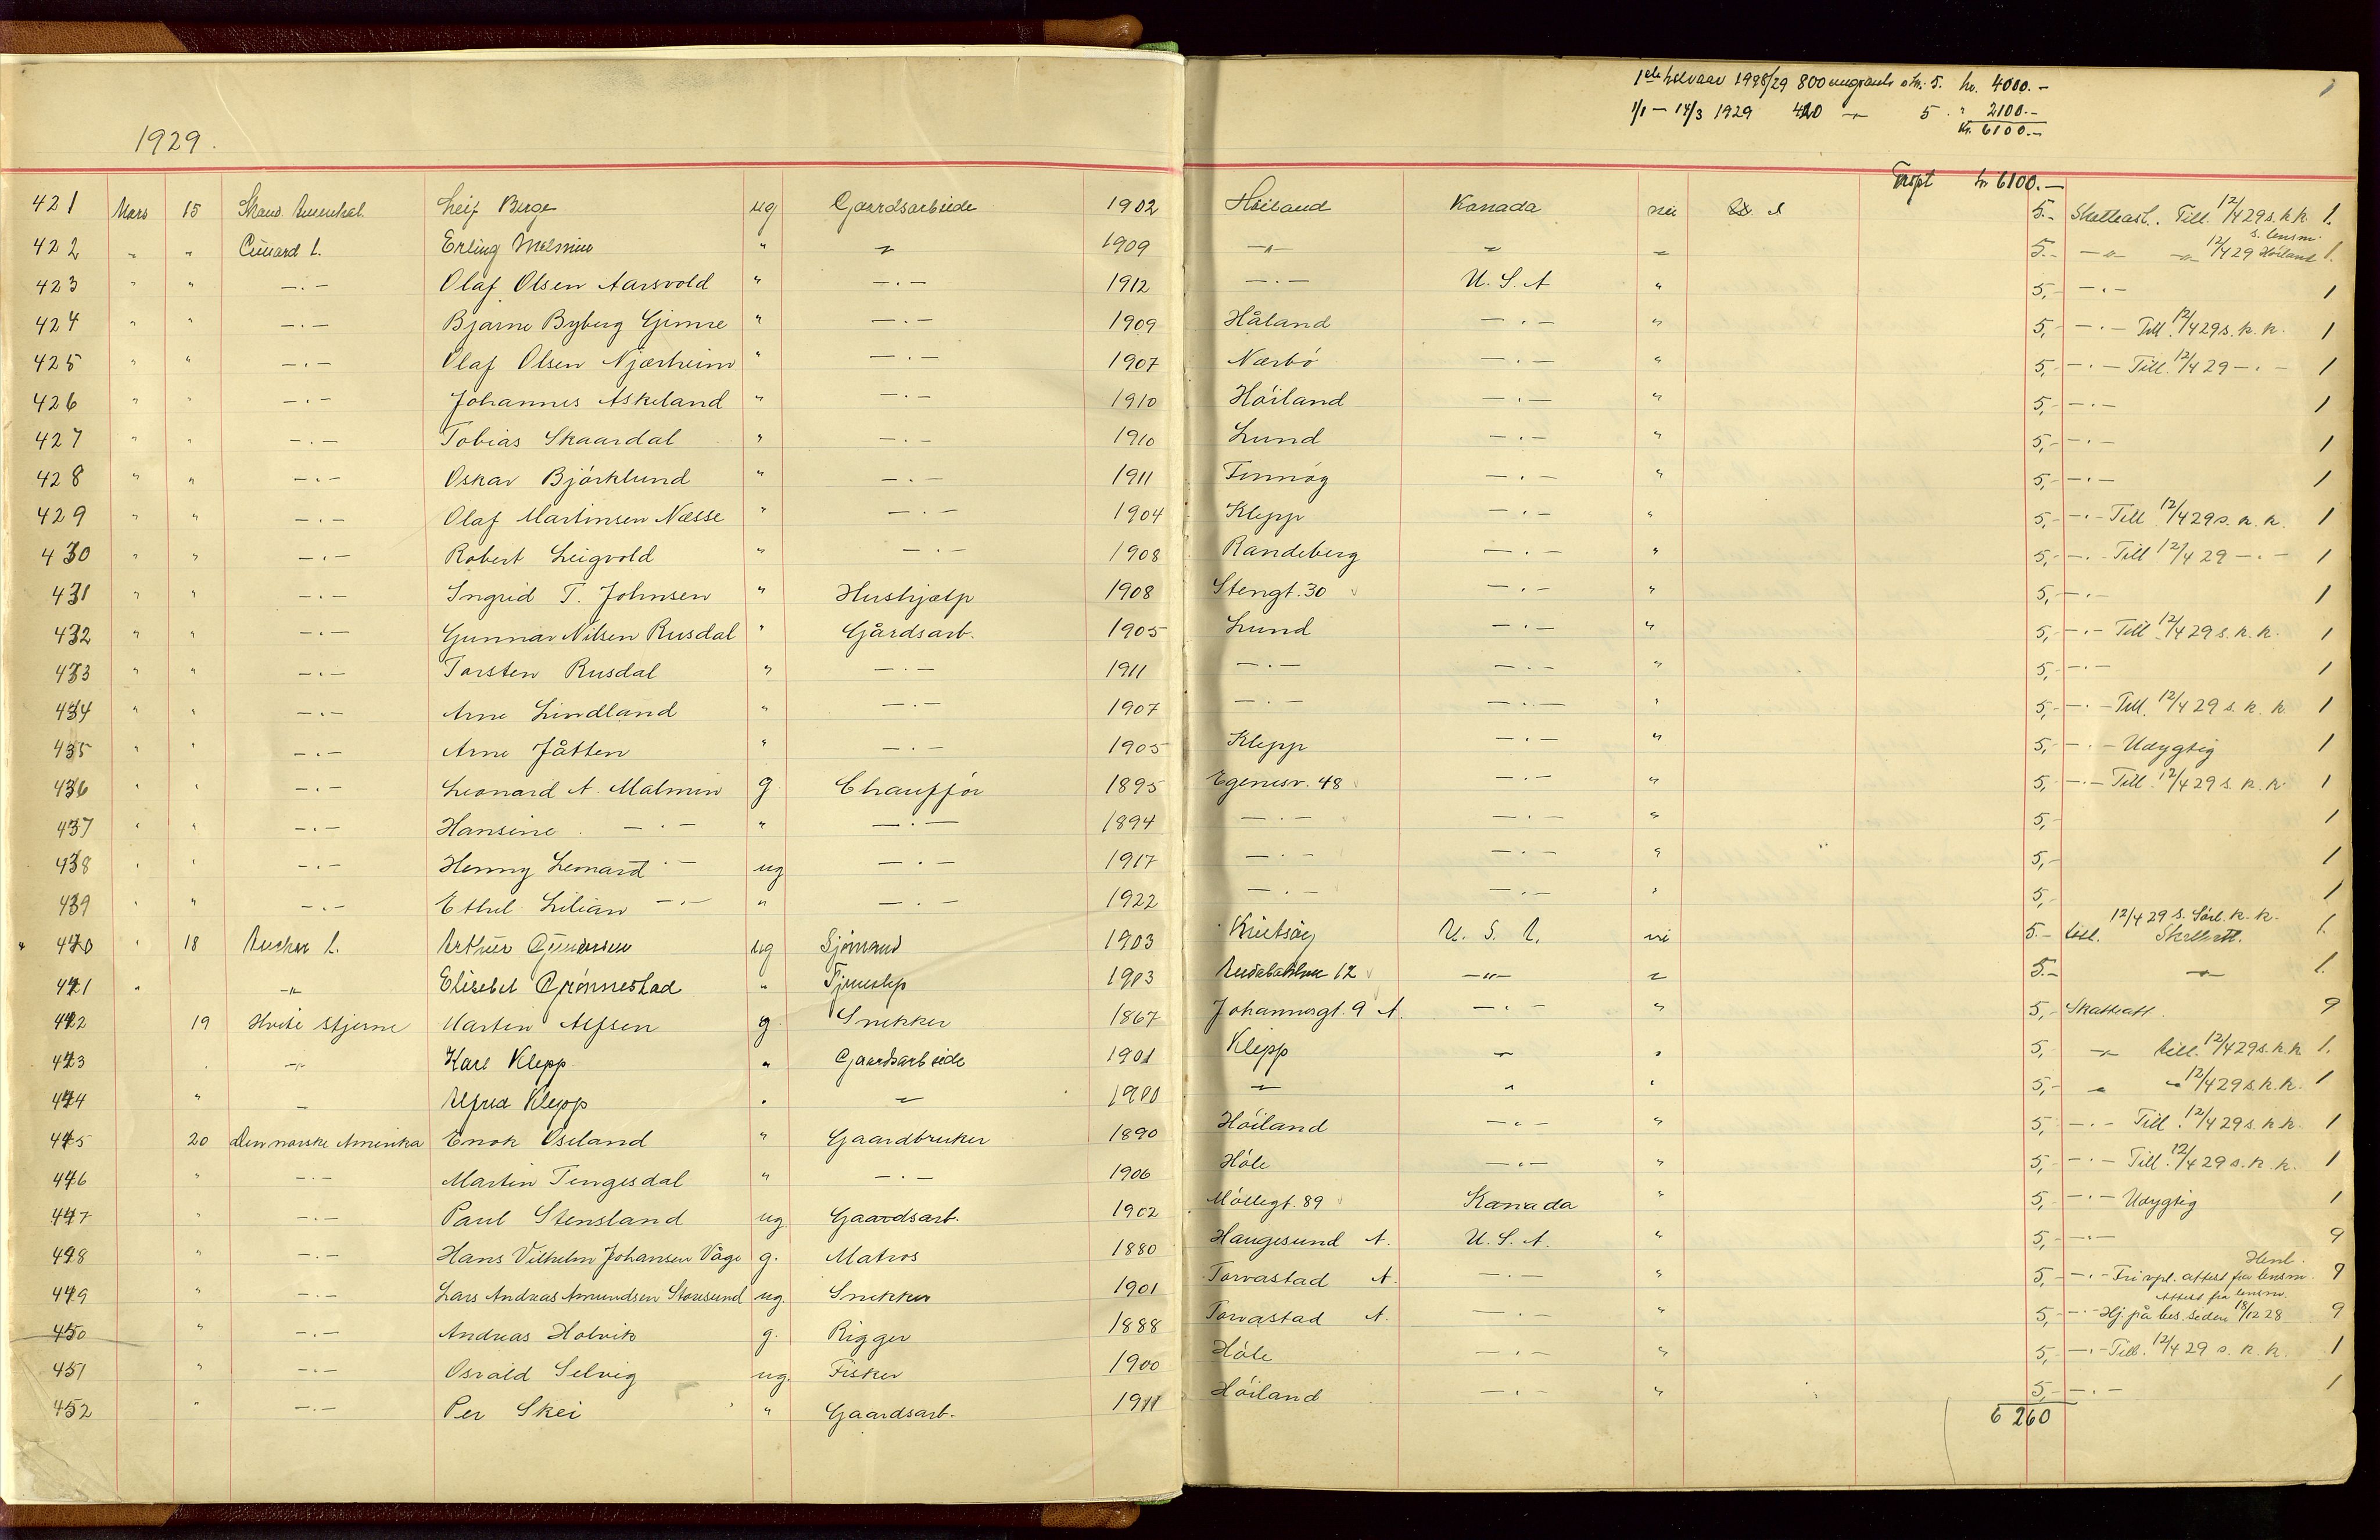 1ste halvaar 1928/29 800 emigranter à kr. 5. kr. 4000.-
1/1 – 14/3 1929 420 -"- 5 " 2100.-
Kr. 6100.-
1929.
kr 6100.-
421 Mars 15 Skand. Leif Berge ug Gaardsarbeide 1902 Höiland Kanada nei 5.- Skatteatt. Till. 12/4 29 s. k.k. 1.
422 " " Cunard L. Erling " " 1909 -"- " " 5.- -"- -"- 12/4 29 s. lensm. Höiland 1.
423 " " -.- Olaf Olsen Aarsvold " -.- 1912 -.- U.S.A " 5,- -.- 1
424 " " -.- Bjarne Byberg Gimre " -.- 1909 Håland -.- " 5,- -.- Till. 12/4 29 s. k. k. 1
425 " " -.- Olaf Olsen Njærheim " -.- 1907 Nærbö -.- " 5,- -.- Till. 12/4 29 -.- 1
426 " " -.- Johannes Askeland " -.- 1910 Höiland -.- " 5,- -.- 1
427 " " -.- Tobias Skaardal " -.- 1910 Lund -.- " 5,- -.- 1
428 " " -.- Oskar Björklund " -.- 1911 Finnöy -.- " 5,- -.- 1
429 " " -.- Olaf Martinsen Næsse " -.- 1904 Klepp -.- " 5,- -.- Till 12/4 29 s. k. k. 1
430 " " -.- Robert Leigvold " -.- 1908 Randeberg -.- " 5,- -.- Till 12/4 29 -.- 1
431 " " -.- Ingrid T. Johnsen " Hushjælp 1908 Stengt. 30 -.- " 5,- -.- 1
432 " " -.- Gunnar Nilsen Rusdal " Gårdsarb. 1905 Lund -.- " 5,- -.- Till 12/4 29 s. k. k. 1
433 " " -.- Torsten Rusdal " -.- 1911 -.- -.- " 5,- -.- 1
434 " " -.- Arne Lindland " -.- 1907 -.- -.- " 5,- -.- Till. 12/4 29 s. k. k. 1
435 " " -.- Arne Jåtten " -.- 1905 Klepp -.- " 5,- -.- Udygtig 1
436 " " -.- Leonard A. Malmin g. Chaufför 1895 Egenesv. 48 -.- " 5,- -.- Till. 12/4 29 s. k. k. 1
437 " " -.- Hansine -.- " -.- 1894 -.- -.- " 5,- 1
438 " " -.- Henny Leonard -.- ug -.- 1917 -.- -.- " 5,- 1
439 " " -.- Ethel Lilian -.- " -.- 1922 -.- -.- " 5,- 1
440 " 18 Anchor L. Arthur Gundersen ug Sjömand 1903 Kvitsöy U.S.A. nei 5.- till. 12/4 29 s. Sörl. k. k. Skatteatt. 1.
441 " -"- Elisabet Grönnestad " 1903 12 -"- " 5.- -"- 1.
442 19 Hvite stjerne Marten Alfsen g. Snekker 1867 Johannesgt. 9 A. -.- " 5,- Skatteatt. 9
443 -"- Karl Klepp " Gaardsarbeide 1901 Klepp " " 5, -"- till. 12/4 29 s. k. k 1.
444 " - Alfred Klepp " " " " " 5,- " " 12/4 29 s. k. k. 1
445 20 Den norske Amerika Enok Oseland " Gaardbruker 1890 Höiland -.- " 5,- -.- Till. 12/4 29 s. k. k. 1
446 " -.- Martin Tengesdal " -.- 1906 Höle -.- " 5,- -.- Till. 12/4 29 s. k. k. 1
447 " -.- Paul Stensland ug. Gaardsarb. 1902 Möllegt. 89 Kanada " 5,- -.- Udygtig 1
448 " -.- Hans Vilhelm Johansen Våge g. Matros 1880 Haugesund A. U.S.A. " 5,- -.- 9
449 " -.- Lars Andreas Amundsen Storesund ug. Snekker 1901 Torvastad A. -.- " 5,- -.- Fri vpl. attest fra lensm. 9
450 " -.- Andreas Holvik g. Rigger 1888 Torvastad A. -.- " 5,- -.- Hj. på bes. siden 18/12 28 Attest fra lensm. 9
451 " -.- Osvald Selvig ug. Fisker 1900 Höle -.- " 5,- -.- Till. 12/4 29 s. k. k. 1
452 " -.- Per Skei " Gaardsarb. 1911 Höiland -.- " 5,- -.- 1
6 260